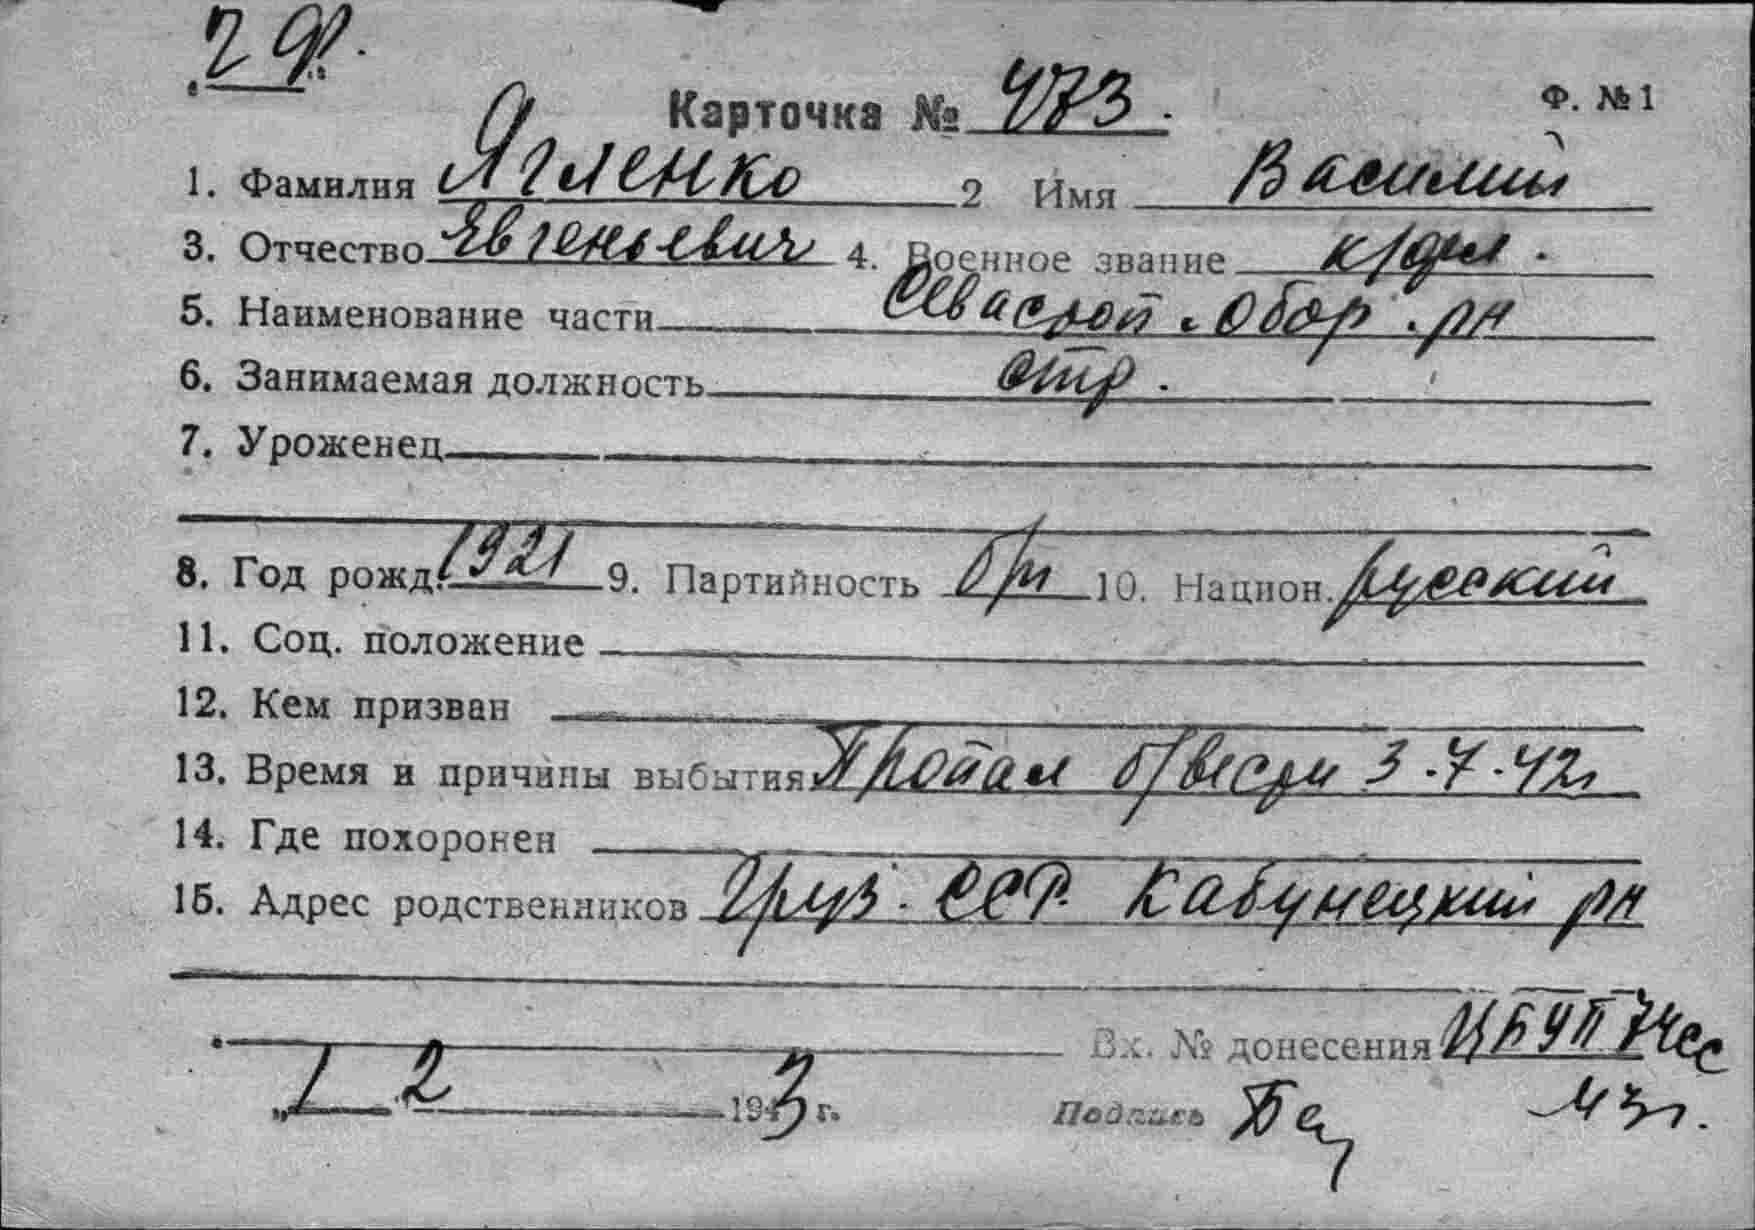 Карточка № 473. Ф. № 1
1. Фамилия Ягленко 2 Имя Василий
3. Отчество Евгеньевич 4. Военное звание к/фл.
5. Наименование части Севастоп. Обор. рн
6. Занимаемая должность стр.
7. Уроженец
8. Год рожд. 1921 9. Партийность б/п 10. Национ. русский
11. Соц. положение
12. Кем призван
13. Время и причины выбытия Пропал б/вести 3.7.42г
14. Где похоронен
15. Адрес родственников Груз. ССР. Кабунецкий рн
Вх. № донесения ЦБУП 74сс
1 2 1943 г. Подпись 43г.